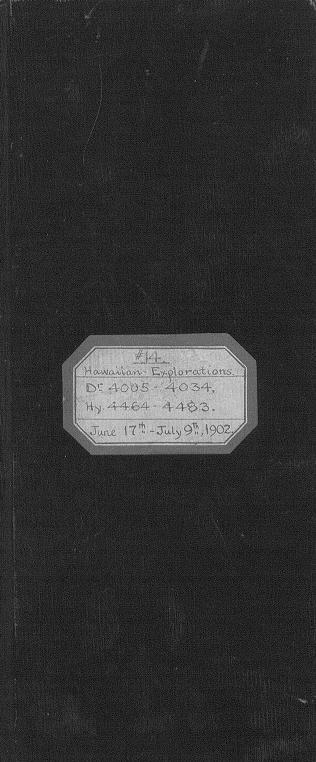 #14.
Hawaiian Explorations.
Dr. 4005 - 4034.
Hy. 4464 - 4483.
June 17th - July 9th, 1902.